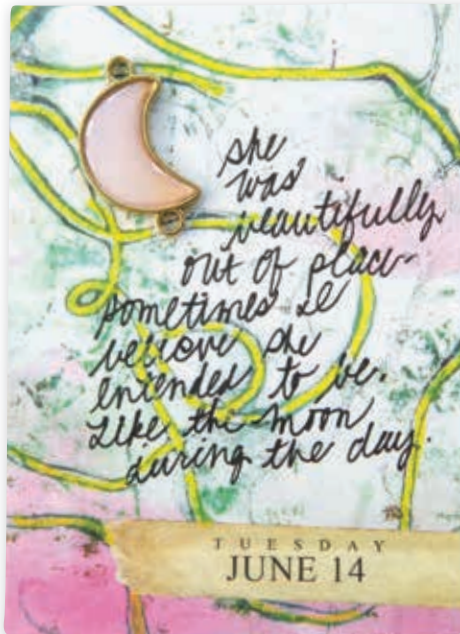 she
was
beautifully
out of place
sometimes I
believe she
intended to be.
Like the moon
during the day.
TUESDAY
JUNE 14